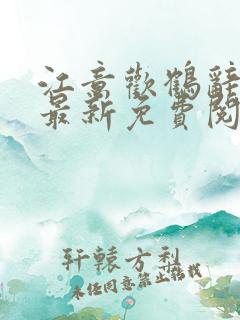 江意歡鶴辭
最新免費閱
轩辕方利
未经同意禁止转载